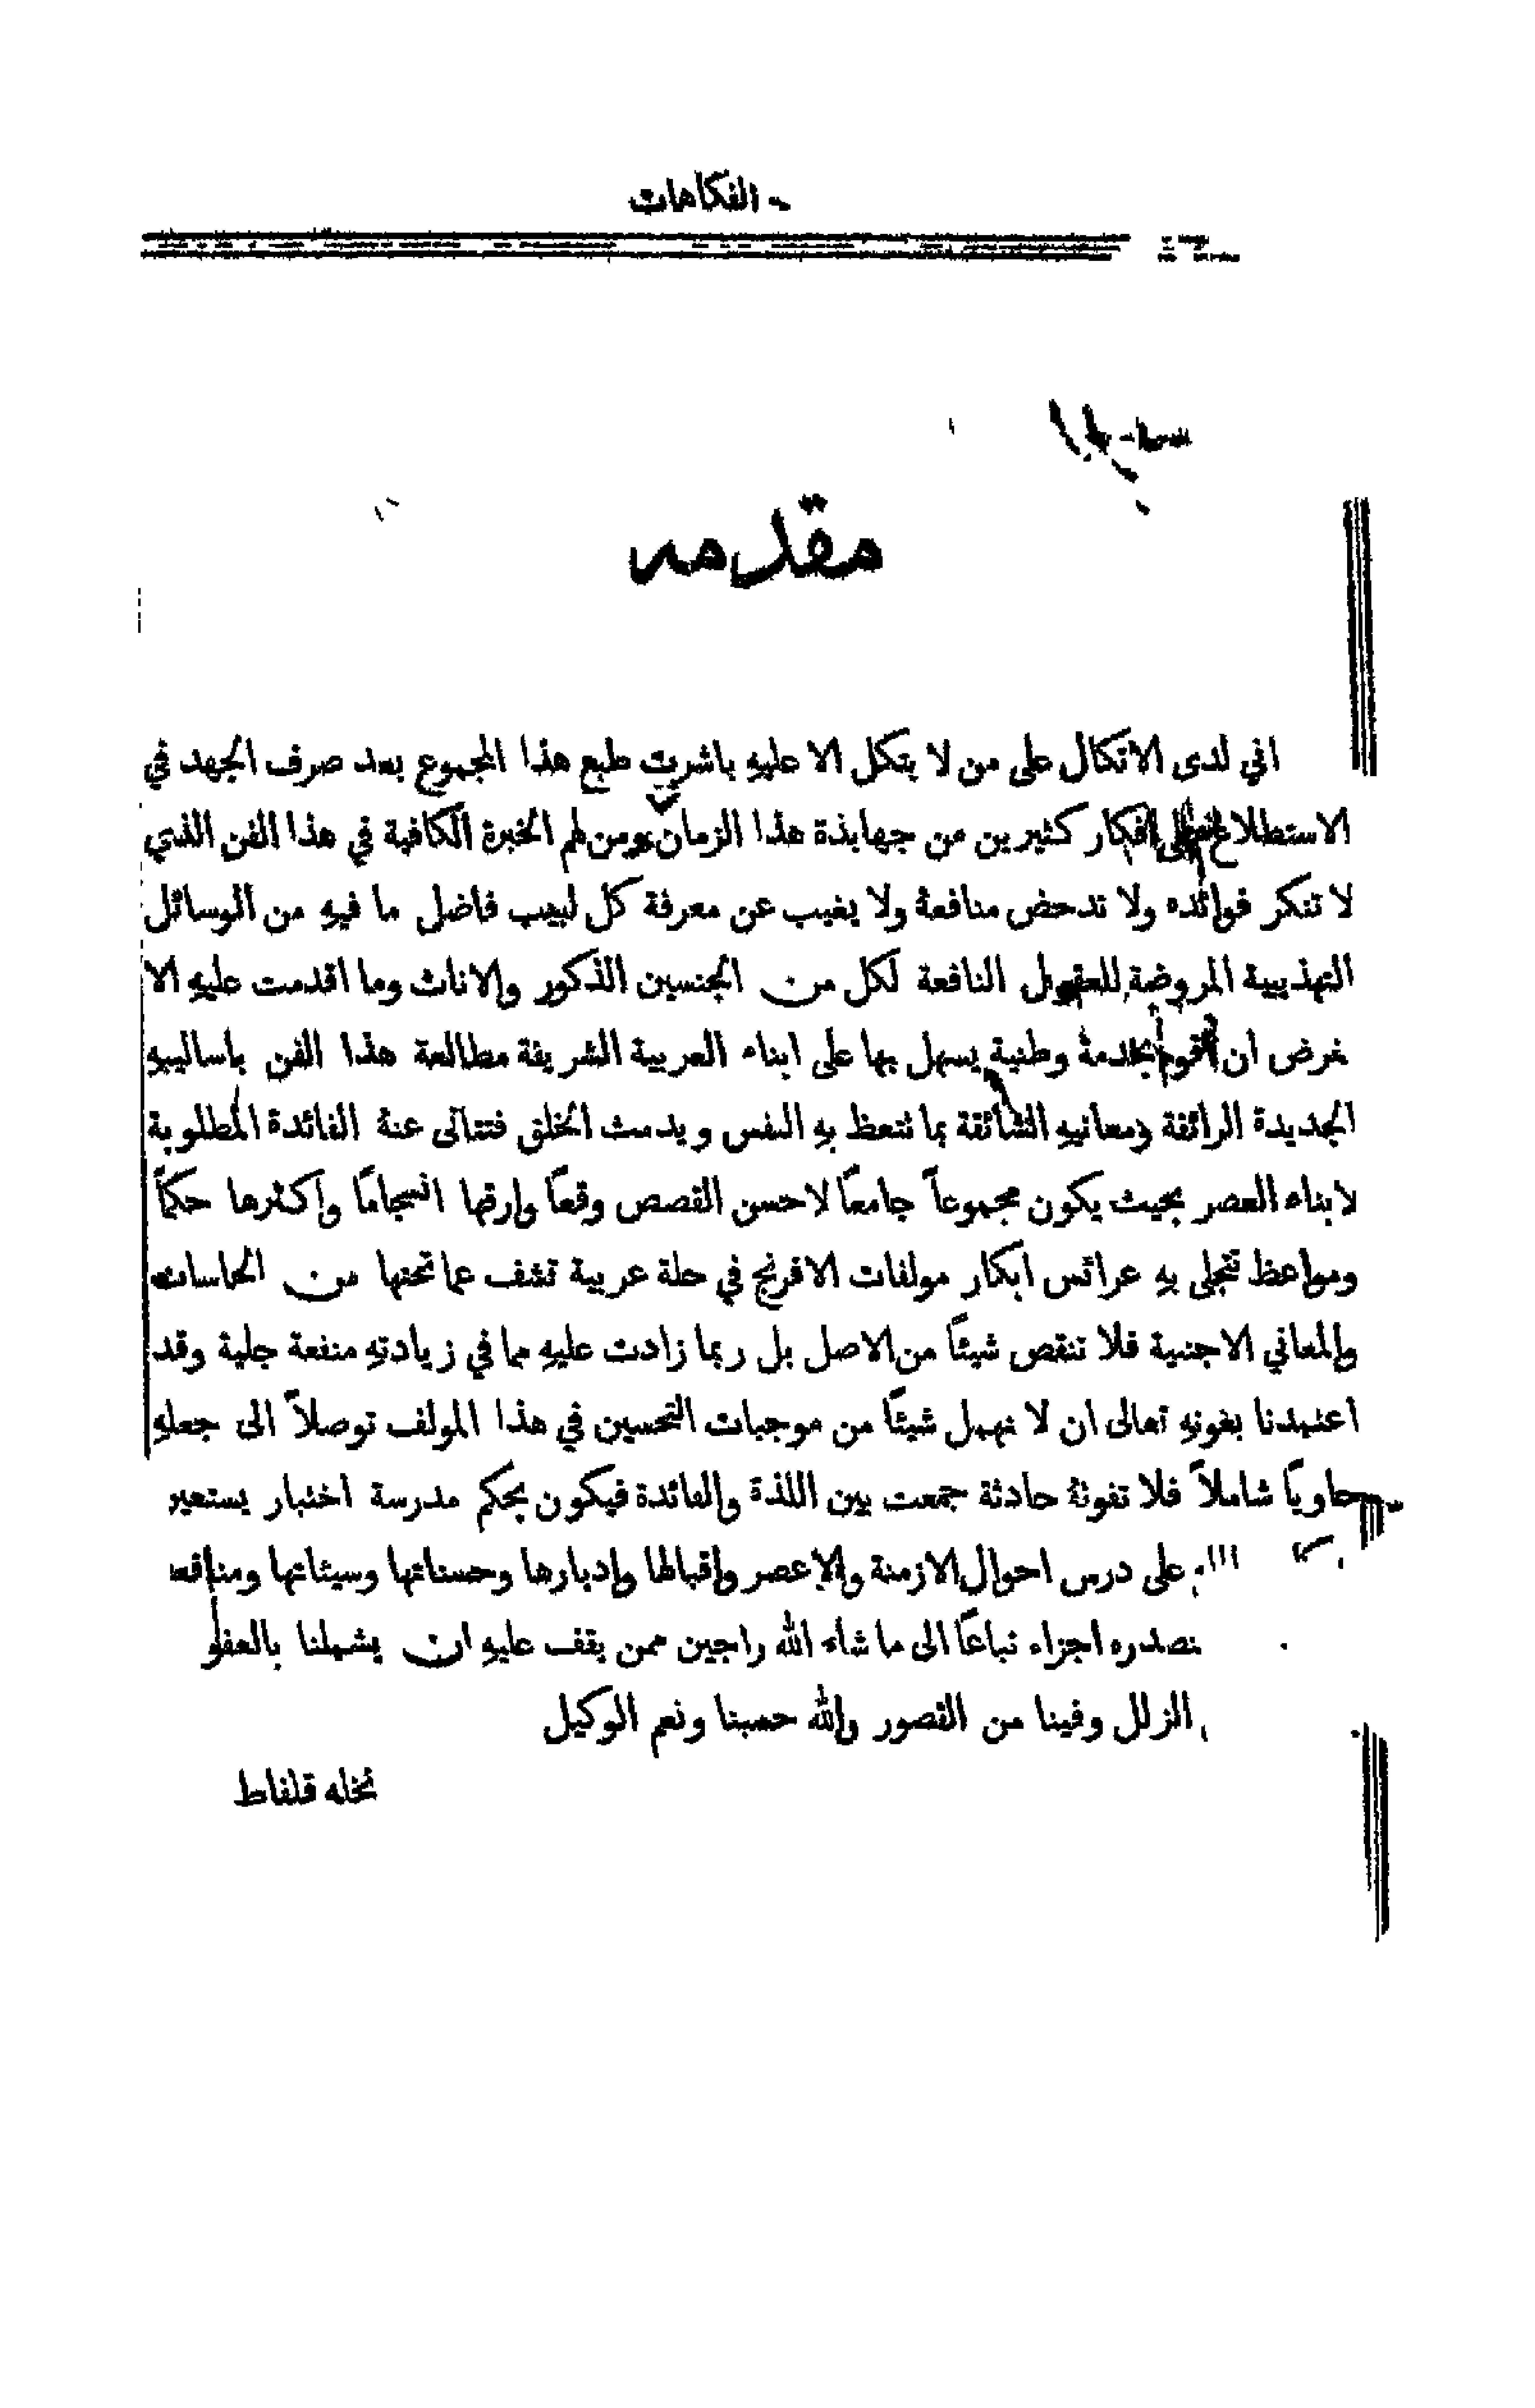 الفكاهات
مقدمه
اني لدى الاتكال على من لا يتكل الا عليهِ باشرت طبع هذا المجموع بعد صرف الجهد في
الاستطلاع افكار كثيرين من جهابذة هذا الزمان ومن لهم الخبرة الكافية في هذا الفن الذي
لا تنكر فوائده ولا تدحض منافعهُ ولا يغيب عن معرفة كل لبيب فاضل ما فيهِ من الوسائل
التهذيبية المروضة للعقول النافعة لكل من الجنسين الذكور والاناث وما اقدمت عليهِ الا
غرض ان اقوم بخدمة وطنية يسهل بها على ابناء العربية الشريفة مطالعة هذا الفن باساليبهِ
الجديدة الرائقة ومعانيهِ الشائقة بما تتعظ بهِ النفس ويدمث الخلق فتتاتى عنهُ الفائدة المطلوبة
لابناء العصر بحيث يكون مجموعاً جامعاً لاحسن القصص وقعاً وارقها انسجاماً واكثرها حكماً
ومواعظ تتجلى بهِ عرائس ابكار مولفات الافرنج في حلة عربية تشف عما تحتها من الحاسات
والمعاني الاجنبية فلا تنقص شيئاً من الاصل بل ربما زادت عليهِ مما في زيادتهِ منفعة جلية وقد
اعتمدنا بعونهِ تعالى ان لا نهمل شيئاً من موجبات التحسين في هذا المولف توصلاً الى جعلهِ
حاوياً شاملاً فلا تفوتهُ حادثة جمعت بين اللذة والفائدة فيكون بحكم مدرسة اختبار يستعين
على درس احوال الازمنة والاعصر واقبالها وادبارها وحسناتها وسيئاتها ومنافعـ
نصدره اجزاء تباعاً الى ما شاء الله راجين ممن يقف عليهِ ان يشملنا بالعفو
الزلل وفينا من القصور والله حسبنا ونعم الوكيل
نخله قلفاط